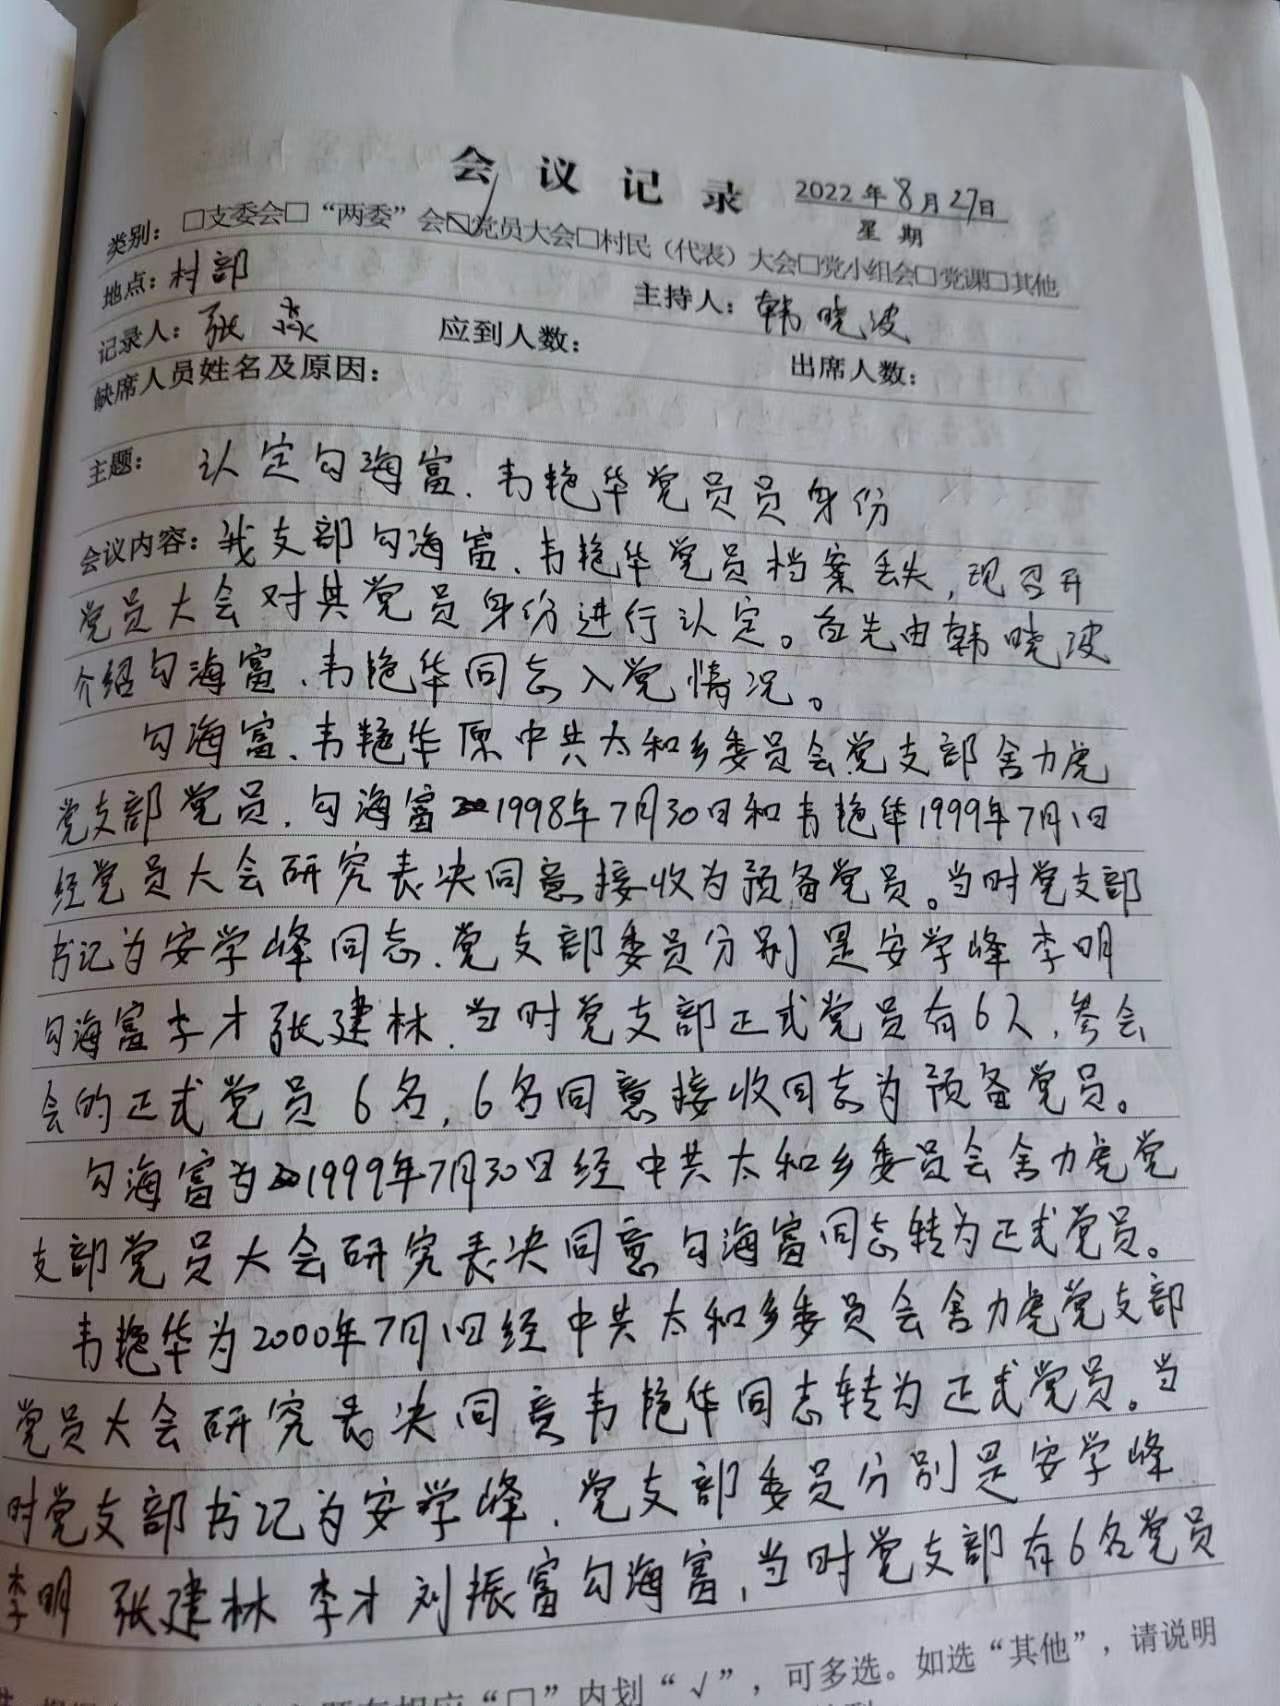 会议记录 2022年8月27日
星期
类别：□支委会□“两委”会☑党员大会□村民（代表）大会□党小组会□党课□其他
地点：村部 主持人：韩晓波
记录人：张淼 应到人数： 出席人数：
缺席人员姓名及原因：
主题： 认定勾海富、韦艳华党员员身份
会议内容：我支部勾海富、韦艳华党员档案丢失，现召开
党员大会对其党员身份进行认定。首先由韩晓波
介绍勾海富、韦艳华同志入党情况。
勾海富、韦艳华原中共太和乡委员会党支部舍力虎
党支部党员，勾海富1998年7月30日和韦艳华1999年7月1日
经党员大会研究表决同意接收为预备党员。当时党支部
书记为安学峰同志、党支部委员分别是安学峰 李明
勾海富李才张建林，当时党支部正式党员有6人，参会
会的正式党员6名，6名同意接收同志为预备党员。
勾海富为1999年7月30日经中共太和乡委员会舍力虎党
支部党员大会研究表决同意勾海富同志转为正式党员。
韦艳华为2000年7月1日经中共太和乡委员会舍力虎党支部
党员大会研究表决同意韦艳华同志转为正式党员。当
时党支部书记为安学峰、党支部委员分别是安学峰
李明 张建林 李才 刘振富勾海富，当时党支部有6名党员
“□”内划“√”，可多选。如选“其他”，请说明